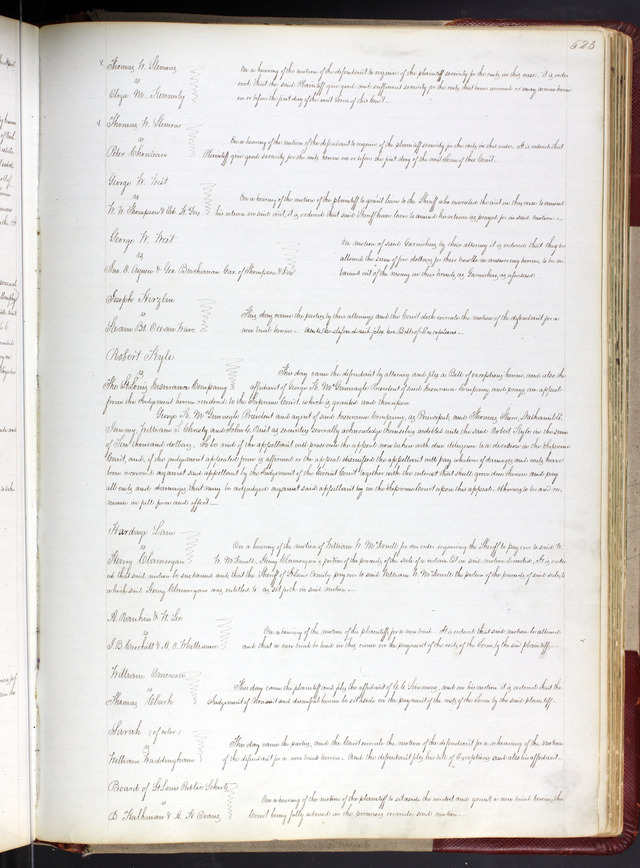 525
Thomas W. Slemons
vs
Eliza M. Kennerly
On a hearing of the motion of the defendant to require of the plaintiff security for the costs in this case. it is order
ered that the said Plaintiff give good and sufficient security for the costs that have accrued or may accrue herein
on or before the first day of the next term of this Court.
Thomas W. Slemons
vs
Peter Chouteau
On a hearing of the motion of the defendant to require of the plaintiff security for the costs in this case. it is ordered that
Plaintiff give good security for the costs herein on or before the first day of the next term of this Court.
George W. West
vs
W. W. Thompson &
On a hearing of the motion of the plaintiff to grant leave to the Sheriff who executed the writ in this case to amend
his return on said writ, it is ordered that said Sheriff have leave to amend his return as prayed for in said motion.
George W. West
vs
& Geo. Buchanan Gar. of Thompson &
On motion of said Garnishees by their attorney it is ordered that they be
allowed the sum of five dollars for their trouble in answering herein, to be re
tained out of the money in their hands as Garnishees as aforesaid
Joseph
vs
Steam Bt Ocean Wave
This day came the parties by their attorneys and the Court doth overrule the motion of the defendant for a
new trial herein. And the defendant files his Bill of Exceptions.
Robert Kyle
vs
The Insurance Company
This day came the defendant by attorney and files a Bill of exceptions herein, and also the
affidavit of George K. McGunnegle President of said Insurance Company and prays an appeal
from the Judgment herein rendered to the Supreme Court, which is granted and thereupon
George K. McGunnegle President and agent of said Insurance Company, as Principal, and Thomas
William L. and John C. as securities severally acknowledge themselves indebted unto the said Robert Kyle in the sum
of Ten thousand dollars. To be void if the appellant will prosecute the appeal now taken with due diligence to a decision in the Supreme
Court, and if the judgment appealed from is affirmed or the appeal dismissed the appellant will pay whatever of damages and costs have
been recovered against said appellant by the Judgment of the Circuit Court together with the interest that shall grow due thereon and pay
all costs and damages that may be adjudged against said appellant by the Supreme Court upon this appeal. otherwise to be and re-
main in full force and effect.
Hardage Lane
vs
Henry Clamorgan
On a hearing of the motion of William W. McDowell for an order requiring the Sheriff to pay over to said W.
W. McDowell, Henry Clamorgan's portion of the proceeds of the sale of a certain lot in said motion described, It is order
ed that said motion be sustained and that the Sheriff of Louis County pay over to said William W. McDowell the portion of the proceeds of said sale, to
which said Henry Clamorgan was entitled to as set forth in said motion.
A. Burnham & W.
vs
J. B. & H. O.
On a hearing of the motion of the plaintiffs for a new trial. It is ordered that said motion be allowed
and that a new trial be had in this cause on the payment of the costs of the Term by the said plaintiffs.
William
vs
Thomas Clark
This day came the plaintiff and files the affidavit of C. C. Simmons, and on his motion it is ordered that the
Judgment of Nonsuit and dismissal herein be set aside on the payment of the costs of the Term by the said plaintiff.
Sarah (of color)
vs
William Waddingham
This day came the parties, and the Court overrule the motion of the defendant for a rehearing of the motion
of the defendant for a new trial herein. And the defendant files his bill of Exceptions and also his affidavit.
Board of St Louis Public Schools
vs
B. & A. H. Evans
On a hearing of the motion of the plaintiff to set aside the nonsuit and grant a new trial herein, the
Court being fully advised in the premises overrules said motion.